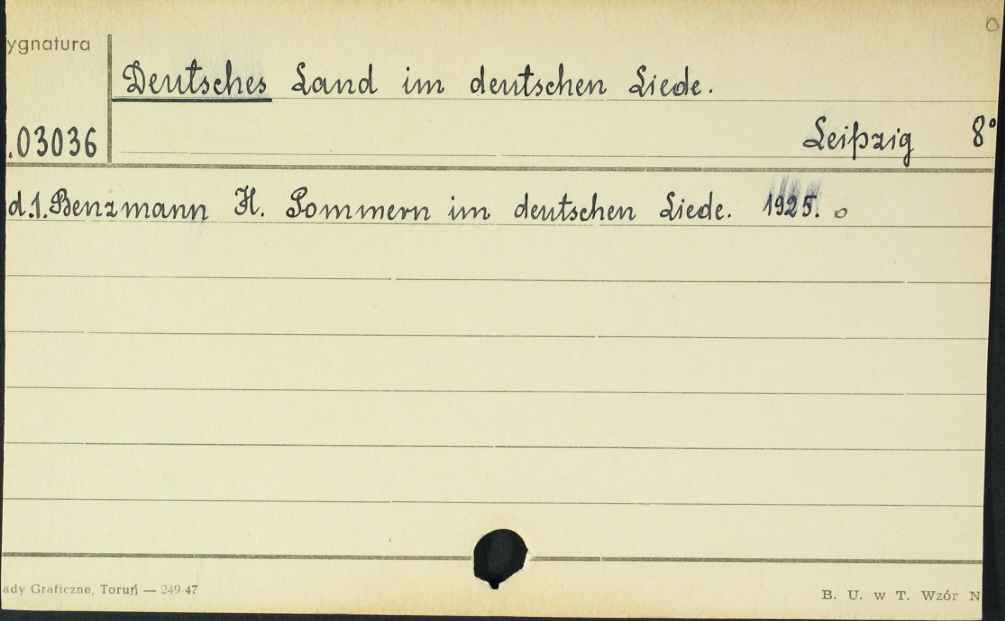 ygnatura
Deutsches Land im deutschen Liede.
.03036
Leipzig 8°
d.1. Benzmann H. Pommern im deutschen Liede. 1925.
ady Graficzne, Toruń — 249-47
B. U. w T. Wzór N